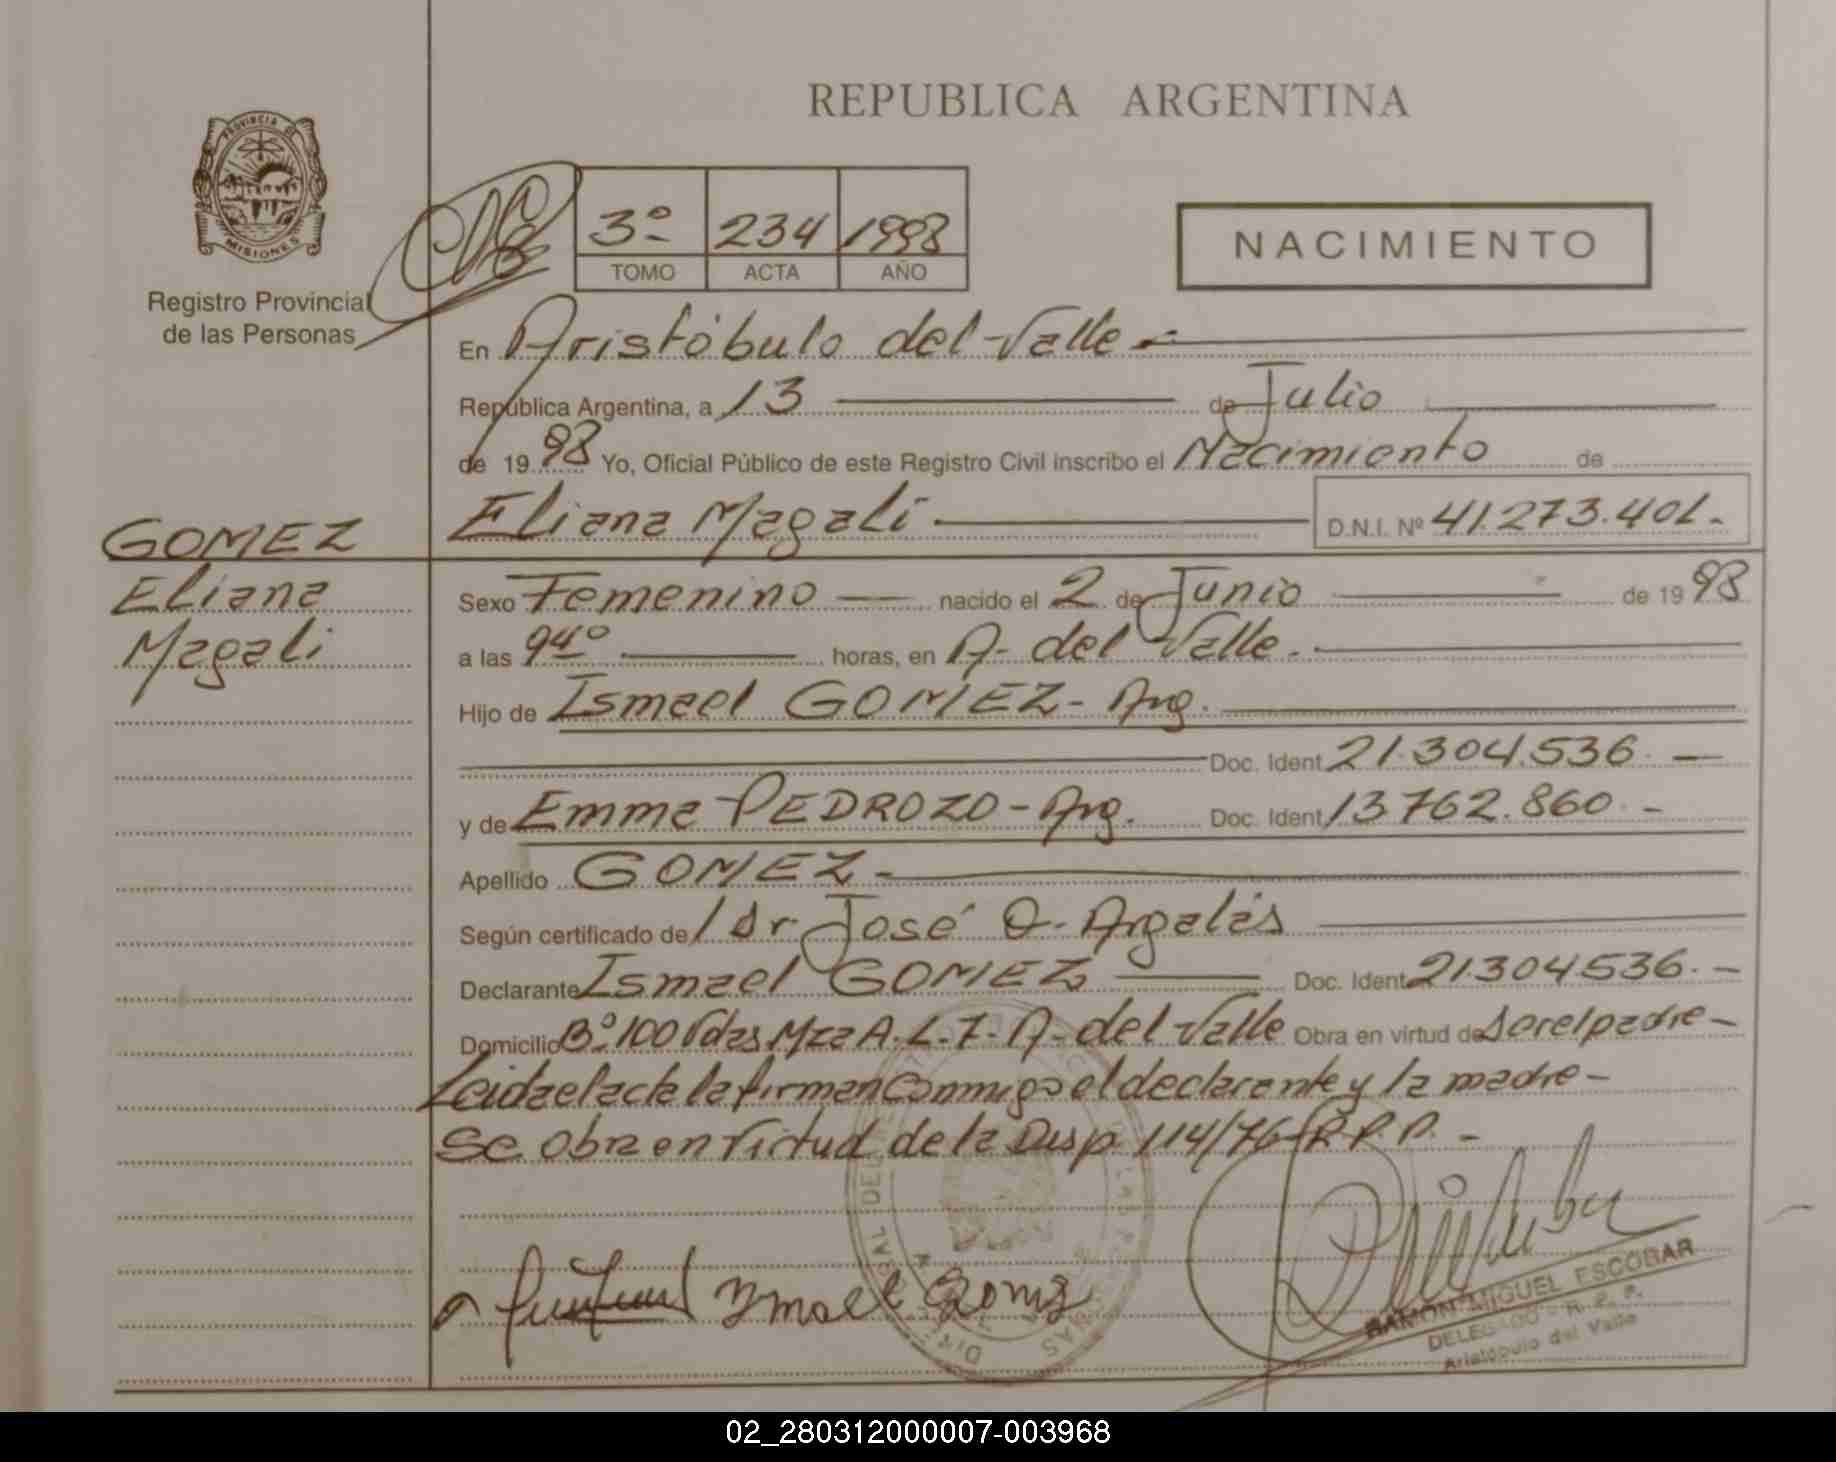 REPUBLICA ARGENTINA
PROVINCIA DE
MISIONES
Registro Provincial
de las Personas
3º 234 1998
TOMO ACTA AÑO
NACIMIENTO
En Aristóbulo del Valle
República Argentina, a 13 de Julio
de 1998 Yo, Oficial Público de este Registro Civil inscribo el Nacimiento de
Eliana Magali D.N.I. Nº 41.273.401.-
GOMEZ
Eliana
Magali
Sexo Femenino nacido el 2 de Junio de 1998
a las 94º horas, en A. del Valle.
Hijo de Ismael GOMEZ - Arg.
Doc. Ident 21.304.536.-
y de Emma PEDROZO - Arg. Doc. Ident 13762.860.-
Apellido GOMEZ-
Según certificado de / dr José O. Argalás
Declarante Ismael GOMEZ Doc. Ident 21304536.-
Domicilio Bº 100 Vdas Mza A. L-7- A- del Valle Obra en virtud de ser el padre-
Leida el acta la firman conmigo el declarante y la madre-
Se obra en virtud de la Disp. 114/76 R.P.P. -
Ysmael Gomez
RAMON MIGUEL ESCOBAR
DELEGADO - R. P. P.
Aristóbulo del Valle
02_280312000007-003968